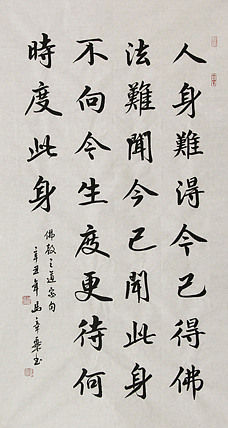 人身難得今已得佛
法難聞今已聞此身
不向今生度更待何
時度此身
佛教之道
辛丑年